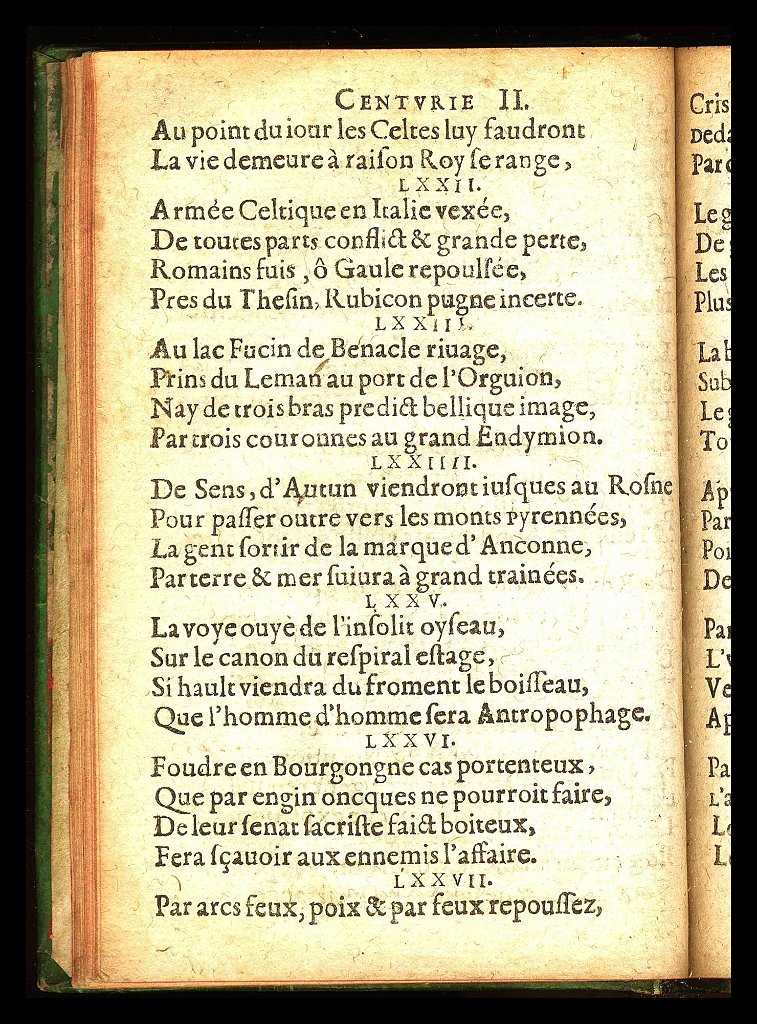 CENTVRIE II.
Au point du iour les Celtes luy faudront
La vie demeure à raiſon Roy ſe range,
LXXII.
Armée Celtique en Italie vexée,
De toutes parts conflict & grande perte,
Romains fuis, ô Gaule repoulſée,
Pres du Theſin, Rubicon pugne incerte.
LXXIII.
Au lac Fucin de Benacle riuage,
Prins du Leman au port de l'Orguion,
Nay de trois bras predict bellique image,
Par trois couronnes au grand Endymion.
LXXIIII.
De Sens, d'Autun viendront iuſques au Roſne
Pour paſſer outre vers les monts pyrennées,
La gent ſortir de la marque d'Anconne,
Par terre & mer ſuiura à grand trainées.
LXXV.
La voye ouye de l'inſolit oyſeau,
Sur le canon du reſpiral eſtage,
Si hault viendra du froment le boiſſeau,
Que l'homme d'homme ſera Antropophage.
LXXVI.
Foudre en Bourgongne cas portenteux,
Que par engin oncques ne pourroit faire,
De leur ſenat ſacriſte faict boiteux,
Fera ſçauoir aux ennemis l'affaire.
LXXVII.
Par arcs feux, poix & par feux repouſſez,
Cris
Par
Le g
De
Les
Plus
Sub
Le g
To
Ap
Par
Poi
De
Par
L'v
Ve
Ap
Pa
L'a
L
L